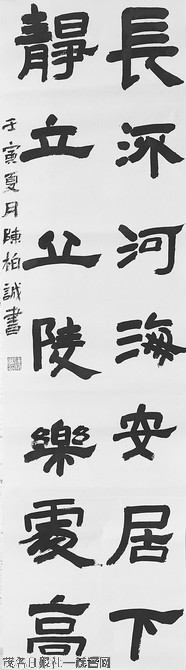 長河海安居下
靜立丘陵樂處高
壬寅夏月陳柏誠書
茂名日報社—茂名网